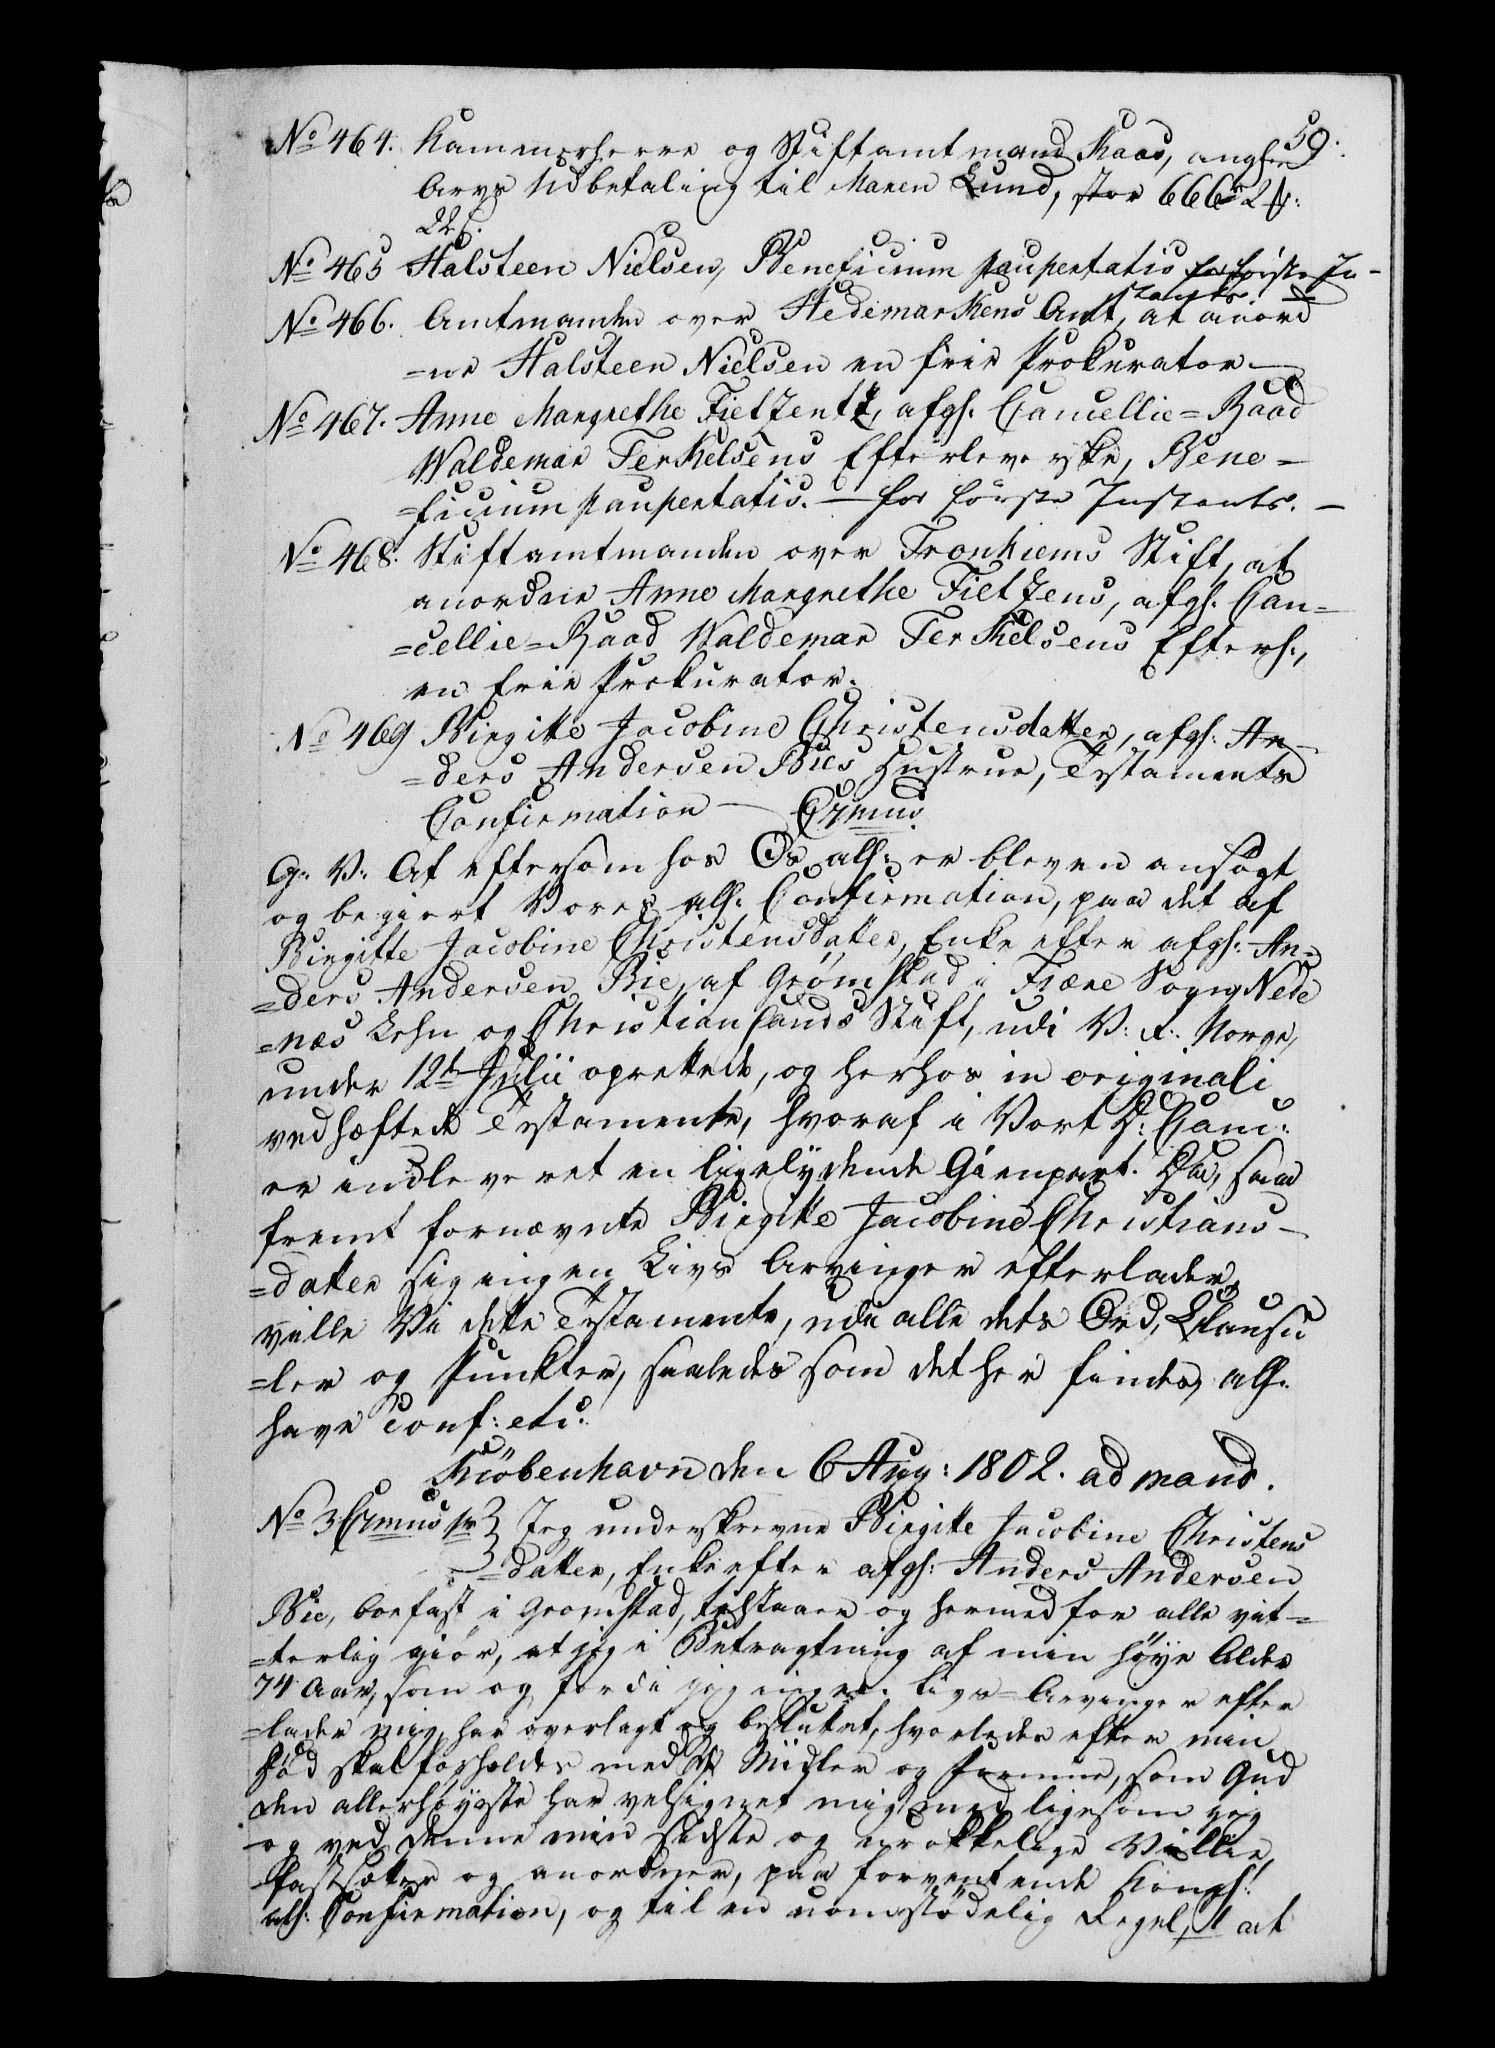 59.
No 464. Kammerherre og Stiftamtmand Kaas, angh:
Arvs Udbetaling til Maren Lund, stor 666 rd 2 ß:
No 465 Halsteen Nielsen, Beneficium paupertatis for første In-
stants.
No 466. Amtmanden over Hedemarkens Amt, at anord
=ne Halsteen Nielsen en frie Prokurator —
No 467. Anne Margrethe Fietzentz, afgh. Cancellie=Raad
Waldemar Ferkelsens Efterleverske, Bene=
=ficium paupertatis. — for første Instants. —
No 468. Stiftamtmanden over Tronhiems Stift, at
anordne Anne Margrethe Fietzens, afgh. Can=
=cellie=Raad Waldemar Ferkelsens Efterh:,
en frie Prokurator.
No 469 Birgitte Jacobine Christensdatter, afgh: An-
=ders Andersen Bies Hustrue, Testaments
Confirmation —
G: V: At eftersom hos Os allh: er bleven ansøgt
og begiert Vores allh: Confirmation, paa det af
Birgitte Jacobine Christensdatter, Enke efter afgh: An=
=ders Andersen Bie, af Grømstad i Fiære Sogn, Nede
=næs Lehn og Christiansands Stift, udi V: R: Norge,
under 12te Julii oprettede, og herhos in originali
vedhæftede Testamente, hvoraf i Vort D: Canc:
er indleveret en ligelydende Gienpart. Da, saa
fremt fornævnte Birgitte Jacobine Christians-
=datter sig ingen Livs Arvinger efterlader,
ville Vi dette Testamente, udi alle dets Ord, Clausu
=ler og Punkter, saaledes som det her findes, allh:
have conf: etc:
Kiöbenhavn den 6 Aug: 1802. ad mand.
No 3 Jeg underskrevne Birgitte Jacobine Christens
=datter, Enke efter afgh: Anders Andersen
Bie, boefast i Gromstad, tilstaaer og hermed for alle vit=
=terlig giör, at jeg i Betragtning af min høye Alder
74 Aar, som og fordi jeg ingen Livs=Arvinger efter
=lader mig, har overlagt og besluttet, hvorledes efter min
Død skal forholdes med de Midler og Formue, som Gud
den allerhøyeste har velsignet mig med ligesom jeg
og ved denne min sidste og urokkelige Villie,
fastsætter og anordner, paa forventende Kongl:
allh: Confirmation, og til en uomstødelig Regel, 1 at